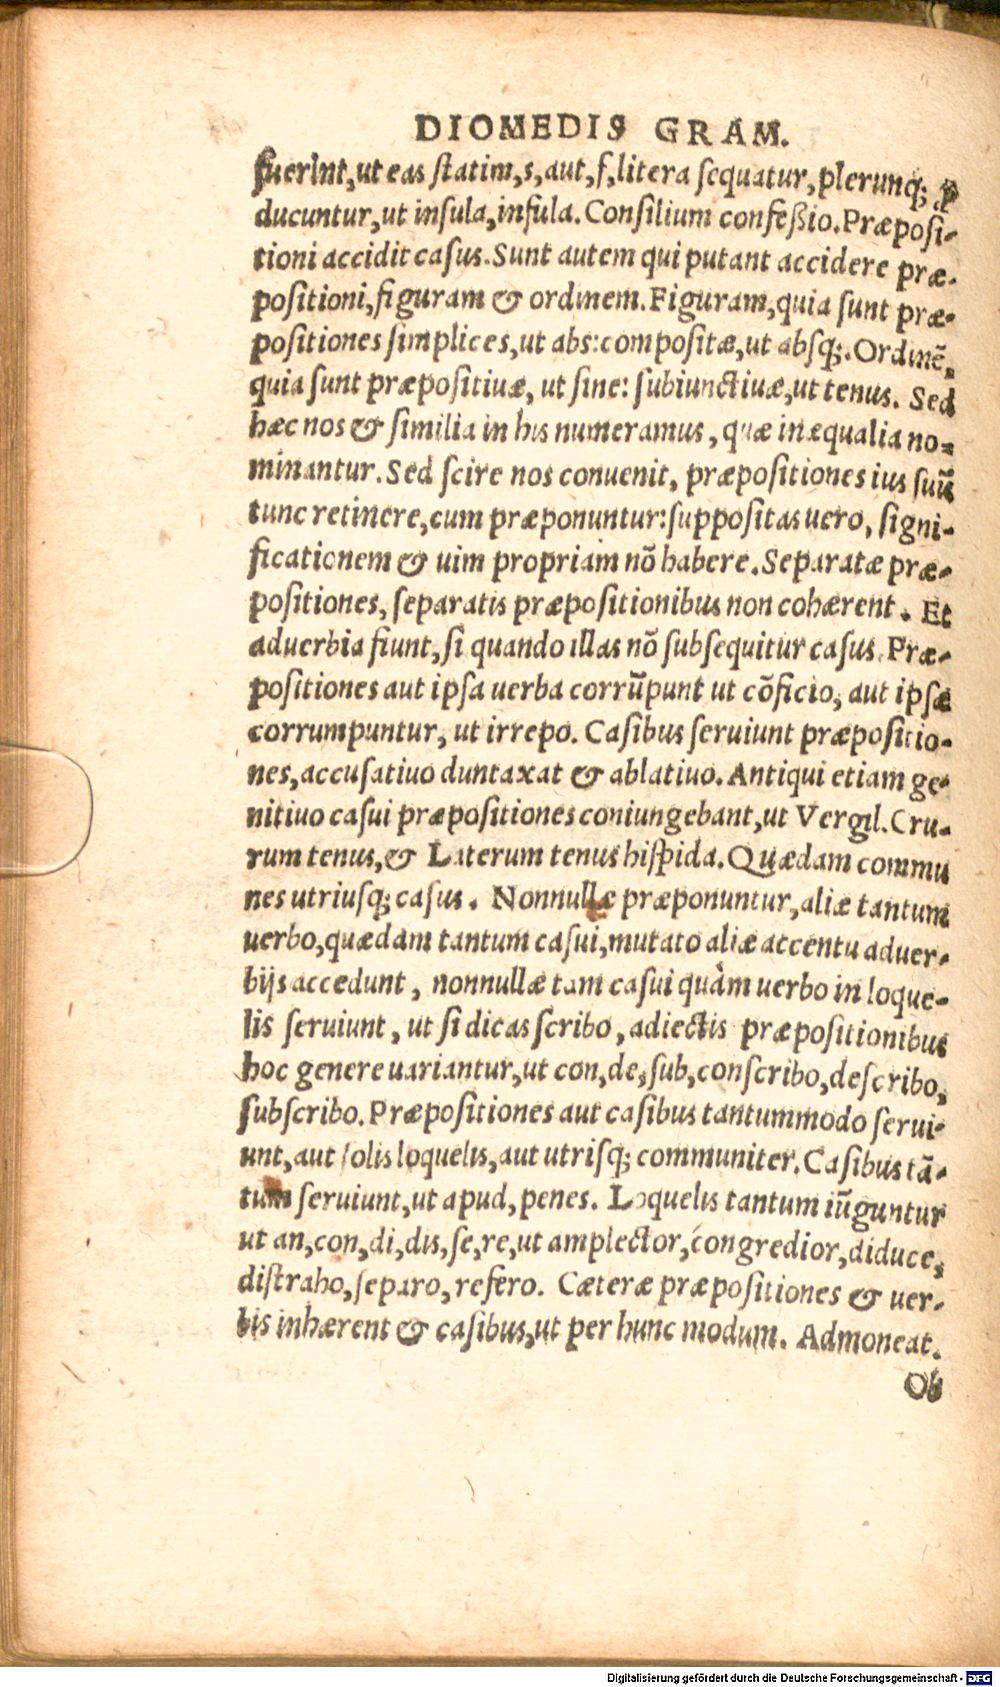 DIOMEDIS GRAM.
fuerint, ut eas statim, s, aut, f, litera sequatur, plerunq; ꝓ
ducuntur, ut insula, infula. Consilium confeßio. Præposi-
tioni accidit casus. Sunt autem qui putant accidere præ-
positioni, figuram & ordinem. Figuram, quia sunt præ-
positiones simplices, ut abs: compositæ, ut absq;. Ordinẽ,
quia sunt præpositiuæ, ut sine: subiunctiuæ, ut tenus. Sed
hæc nos & similia in his numeramus, quæ inæqualia no-
minantur. Sed scire nos conuenit, præpositiones ius suũ
tunc retinere, cum præponuntur: suppositas uero, signi-
ficationem & uim propriam nõ habere. Separatæ præ-
positiones, separatis præpositionibus non cohærent. Et
aduerbia fiunt, si quando illas nõ subsequitur casus. Præ-
positiones aut ipsa uerba corrũpunt ut cõficio, aut ipsæ
corrumpuntur, ut irrepo. Casibus seruiunt præpositio-
nes, accusatiuo duntaxat & ablatiuo. Antiqui etiam ge-
nitiuo casui præpositiones coniungebant, ut Vergil. Cru-
rum tenus, & Laterum tenus hispida. Quædam commu
nes utriusq; casus. Nonnullæ præponuntur, aliæ tantum
uerbo, quædam tantum casui, mutato aliæ accentu aduer-
bijs accedunt, nonnullæ tam casui quàm uerbo in loque-
lis seruiunt, ut si dicas scribo, adiectis præpositionibus
hoc genere uariantur, ut con, de, sub, conscribo, describo,
subscribo. Præpositiones aut casibus tantummodo serui-
unt, aut solis loquelis, aut utrisq; communiter. Casibus tã-
tum seruiunt, ut apud, penes. Loquelis tantum iũguntur
ut an, con, di, dis, se, re, ut amplector, congredior, diduce,
distraho, separo, refero. Cæteræ præpositiones & uer-
bis inhærent & casibus, ut per hunc modum. Admoneat.
Ob
Digitalisierung gefördert durch die Deutsche Forschungsgemeinschaft - DFG